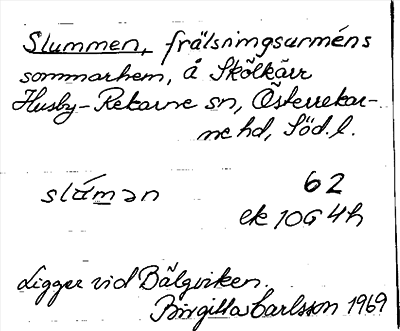 Slummen, frälsningsarméns
sommarhem, å Skölkärr
Husby-Rekarne sn, Österrekar-
ne hd, Söd. l.
slúmən 62
ek 10G 4h
Ligger vid Bälgviken.
Birgitta Carlsson 1969